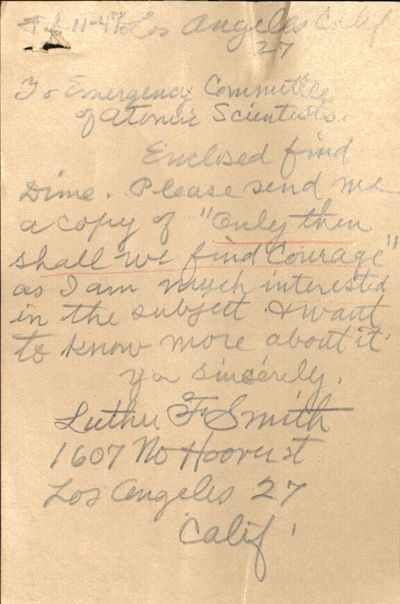 Feb-11-47 Los Angeles Calif
27
To Emergency Committee
of Atomic Scientists.
Enclosed find
Dime. Please send me
a copy of "Only then
shall we find Courage"
as I am much interested
in the subject & want
to know more about it.
Yo sincerely.
Luther F Smith
1607 No Hoover st
Los Angeles 27
Calif